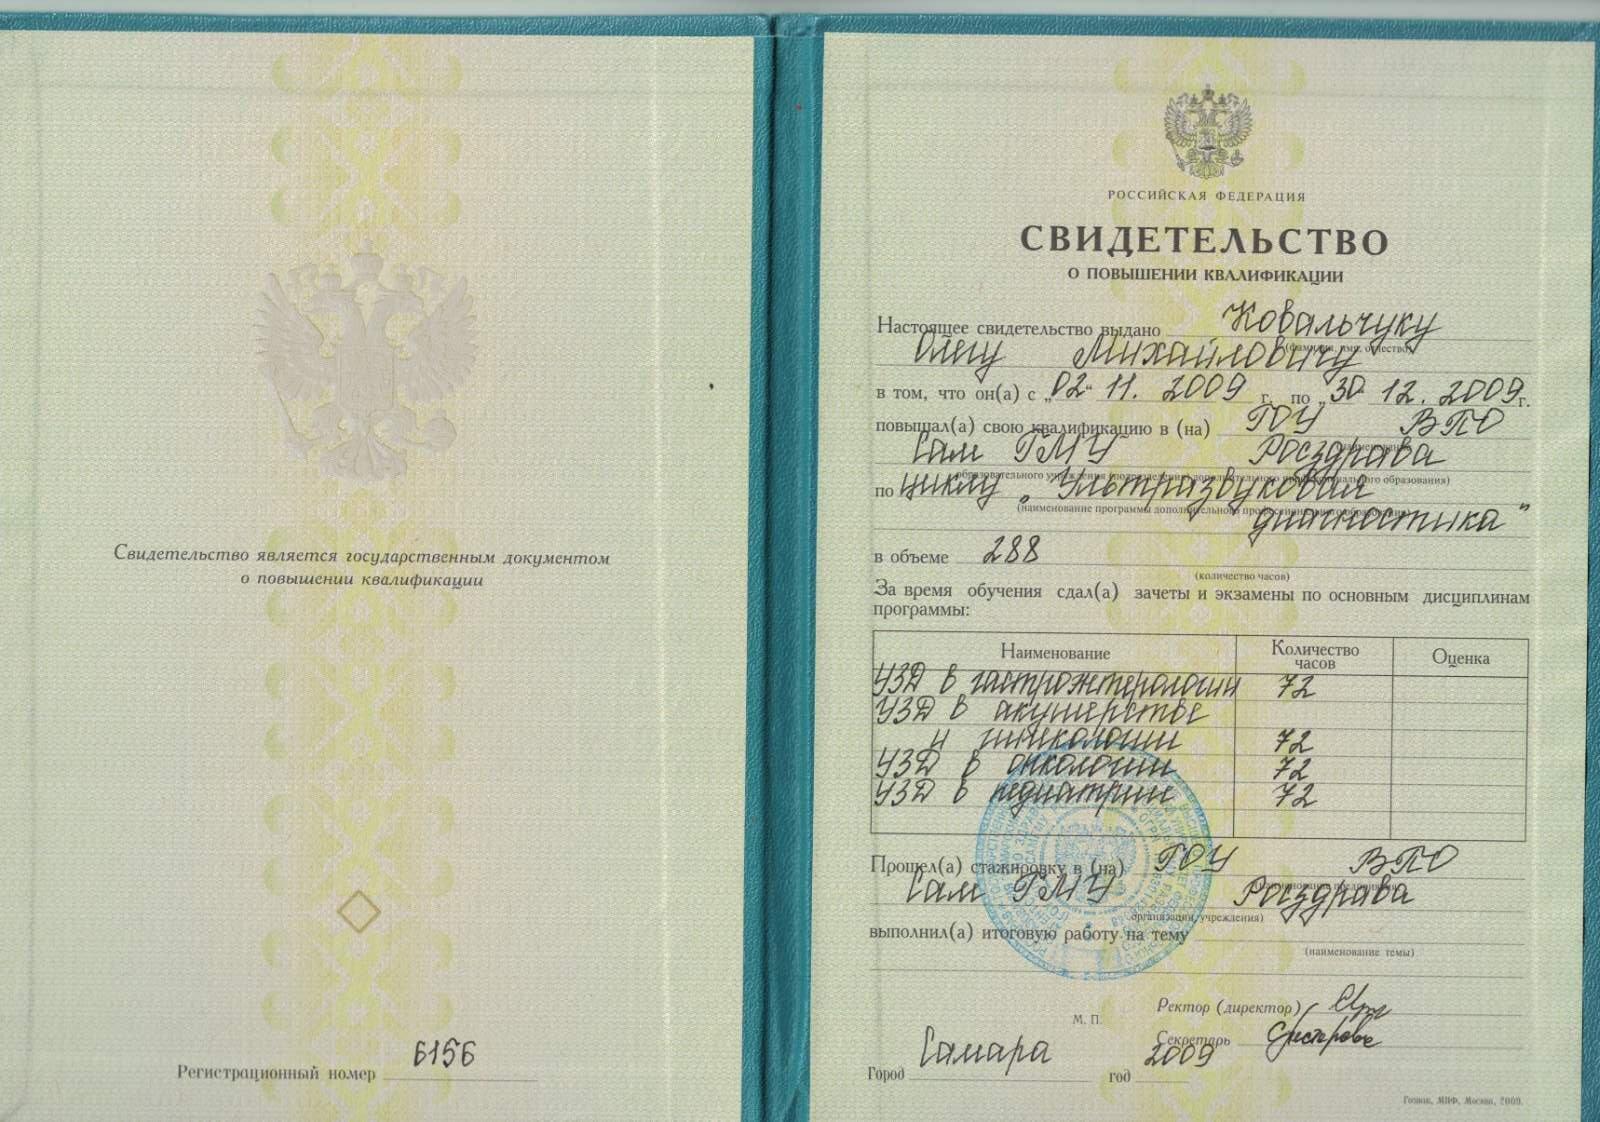 Свидетельство является государственным документом
о повышении квалификации
Регистрационный номер 6156
РОССИЙСКАЯ ФЕДЕРАЦИЯ
СВИДЕТЕЛЬСТВО
О ПОВЫШЕНИИ КВАЛИФИКАЦИИ
Настоящее свидетельство выдано Ковальчуку
(фамилия, имя, отчество)
Олегу Михайловичу
в том, что он(а) с „02“ 11. 2009 г. по „30“ 12. 2009 г.
повышал(а) свою квалификацию в (на) ГОУ ВПО
(наименование
Сам ГМУ Росздрава
образовательного учреждения (подразделения) дополнительного профессионального образования)
по циклу „Ультразвуковая
(наименование программы дополнительного профессионального образования)
диагностика"
в объеме 288
(количество часов)
За время обучения сдал(а) зачеты и экзамены по основным дисциплинам
программы:
Наименование Количество часов Оценка
УЗД в гастроэнтерологии 72
УЗД в акушерстве
и гинекологии 72
УЗД в онкологии 72
УЗД в педиатрии 72
Прошел(а) стажировку в (на) ГОУ ВПО
(наименование предприятия,
Сам ГМУ Росздрава
организации, учреждения)
выполнил(а) итоговую работу на тему
(наименование темы)
Ректор (директор)
М. П.
Секретарь
Город Самара год 2009
Гознак, МПФ, Москва, 2009.